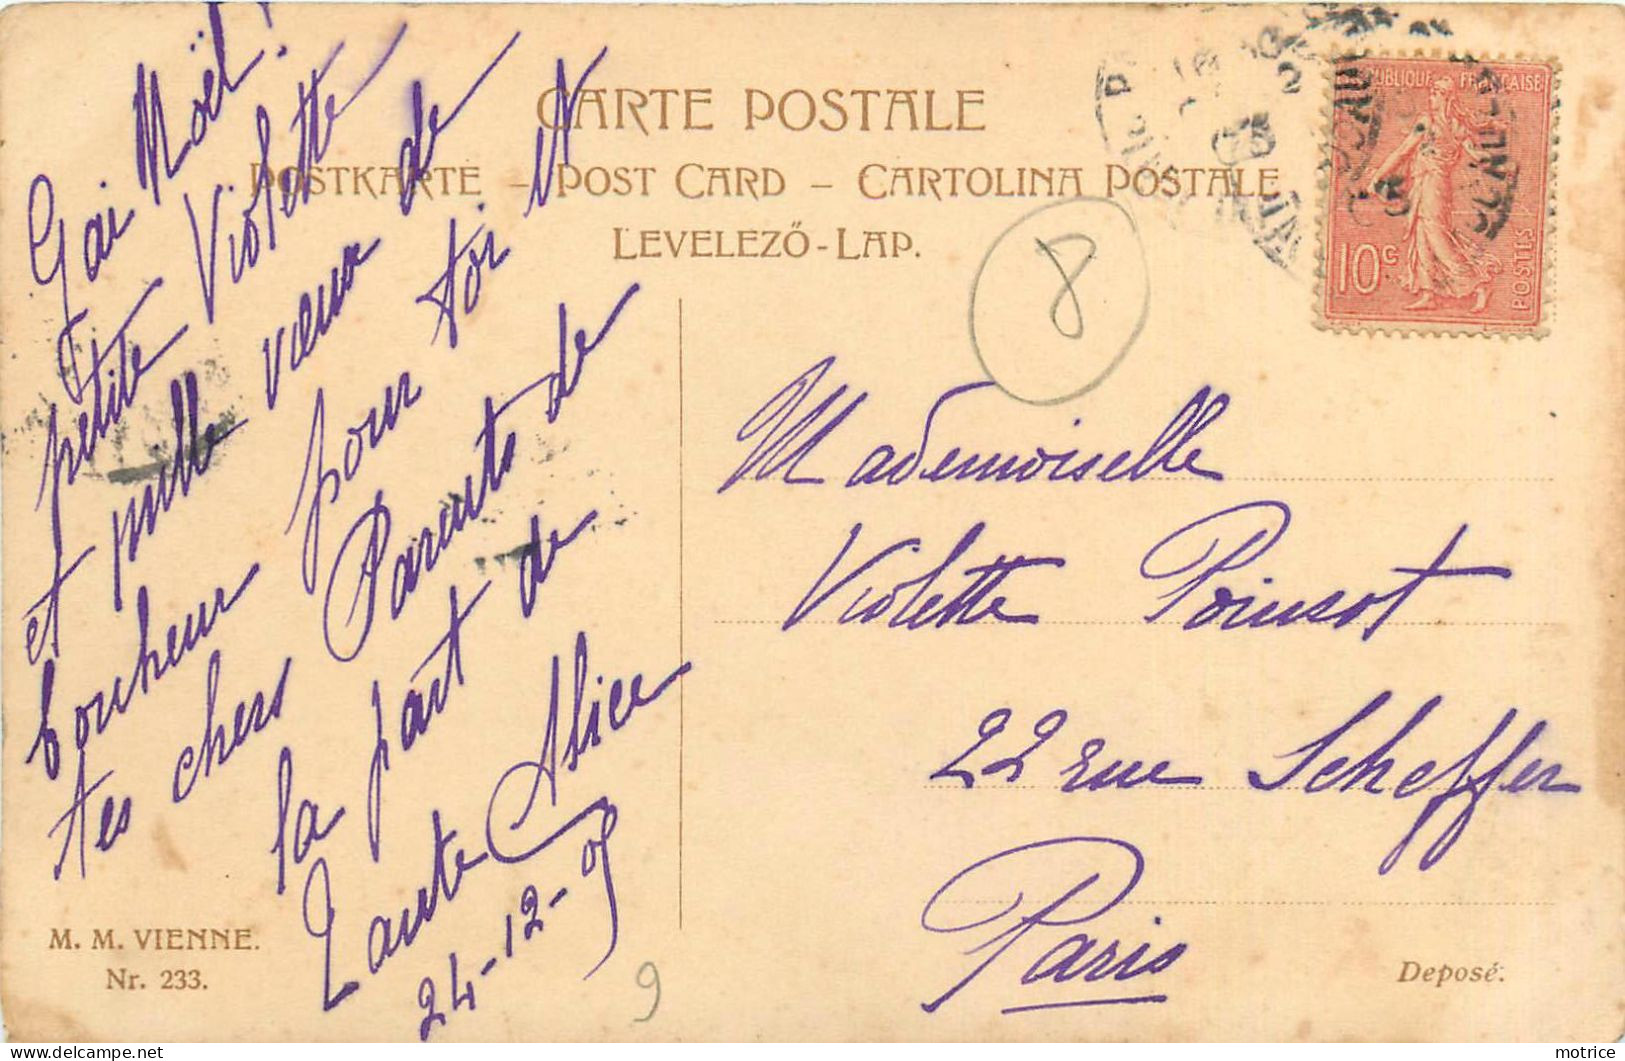 CARTE POSTALE
POSTKARTE – POST CARD – CARTOLINA POSTALE
LEVELEZŐ-LAP.
RÉPUBLIQUE FRANÇAISE
10c
POSTES
8
Gai Noël!
petite Violette
et mille vœux de
bonheur pour toi et
tes chers Parents de
la part de
Tante Alice
24-12-05
Mademoiselle
Violette Poinsot
22 rue Scheffer
Paris
M. M. VIENNE.
Nr. 233.
Deposé.
9
motrice